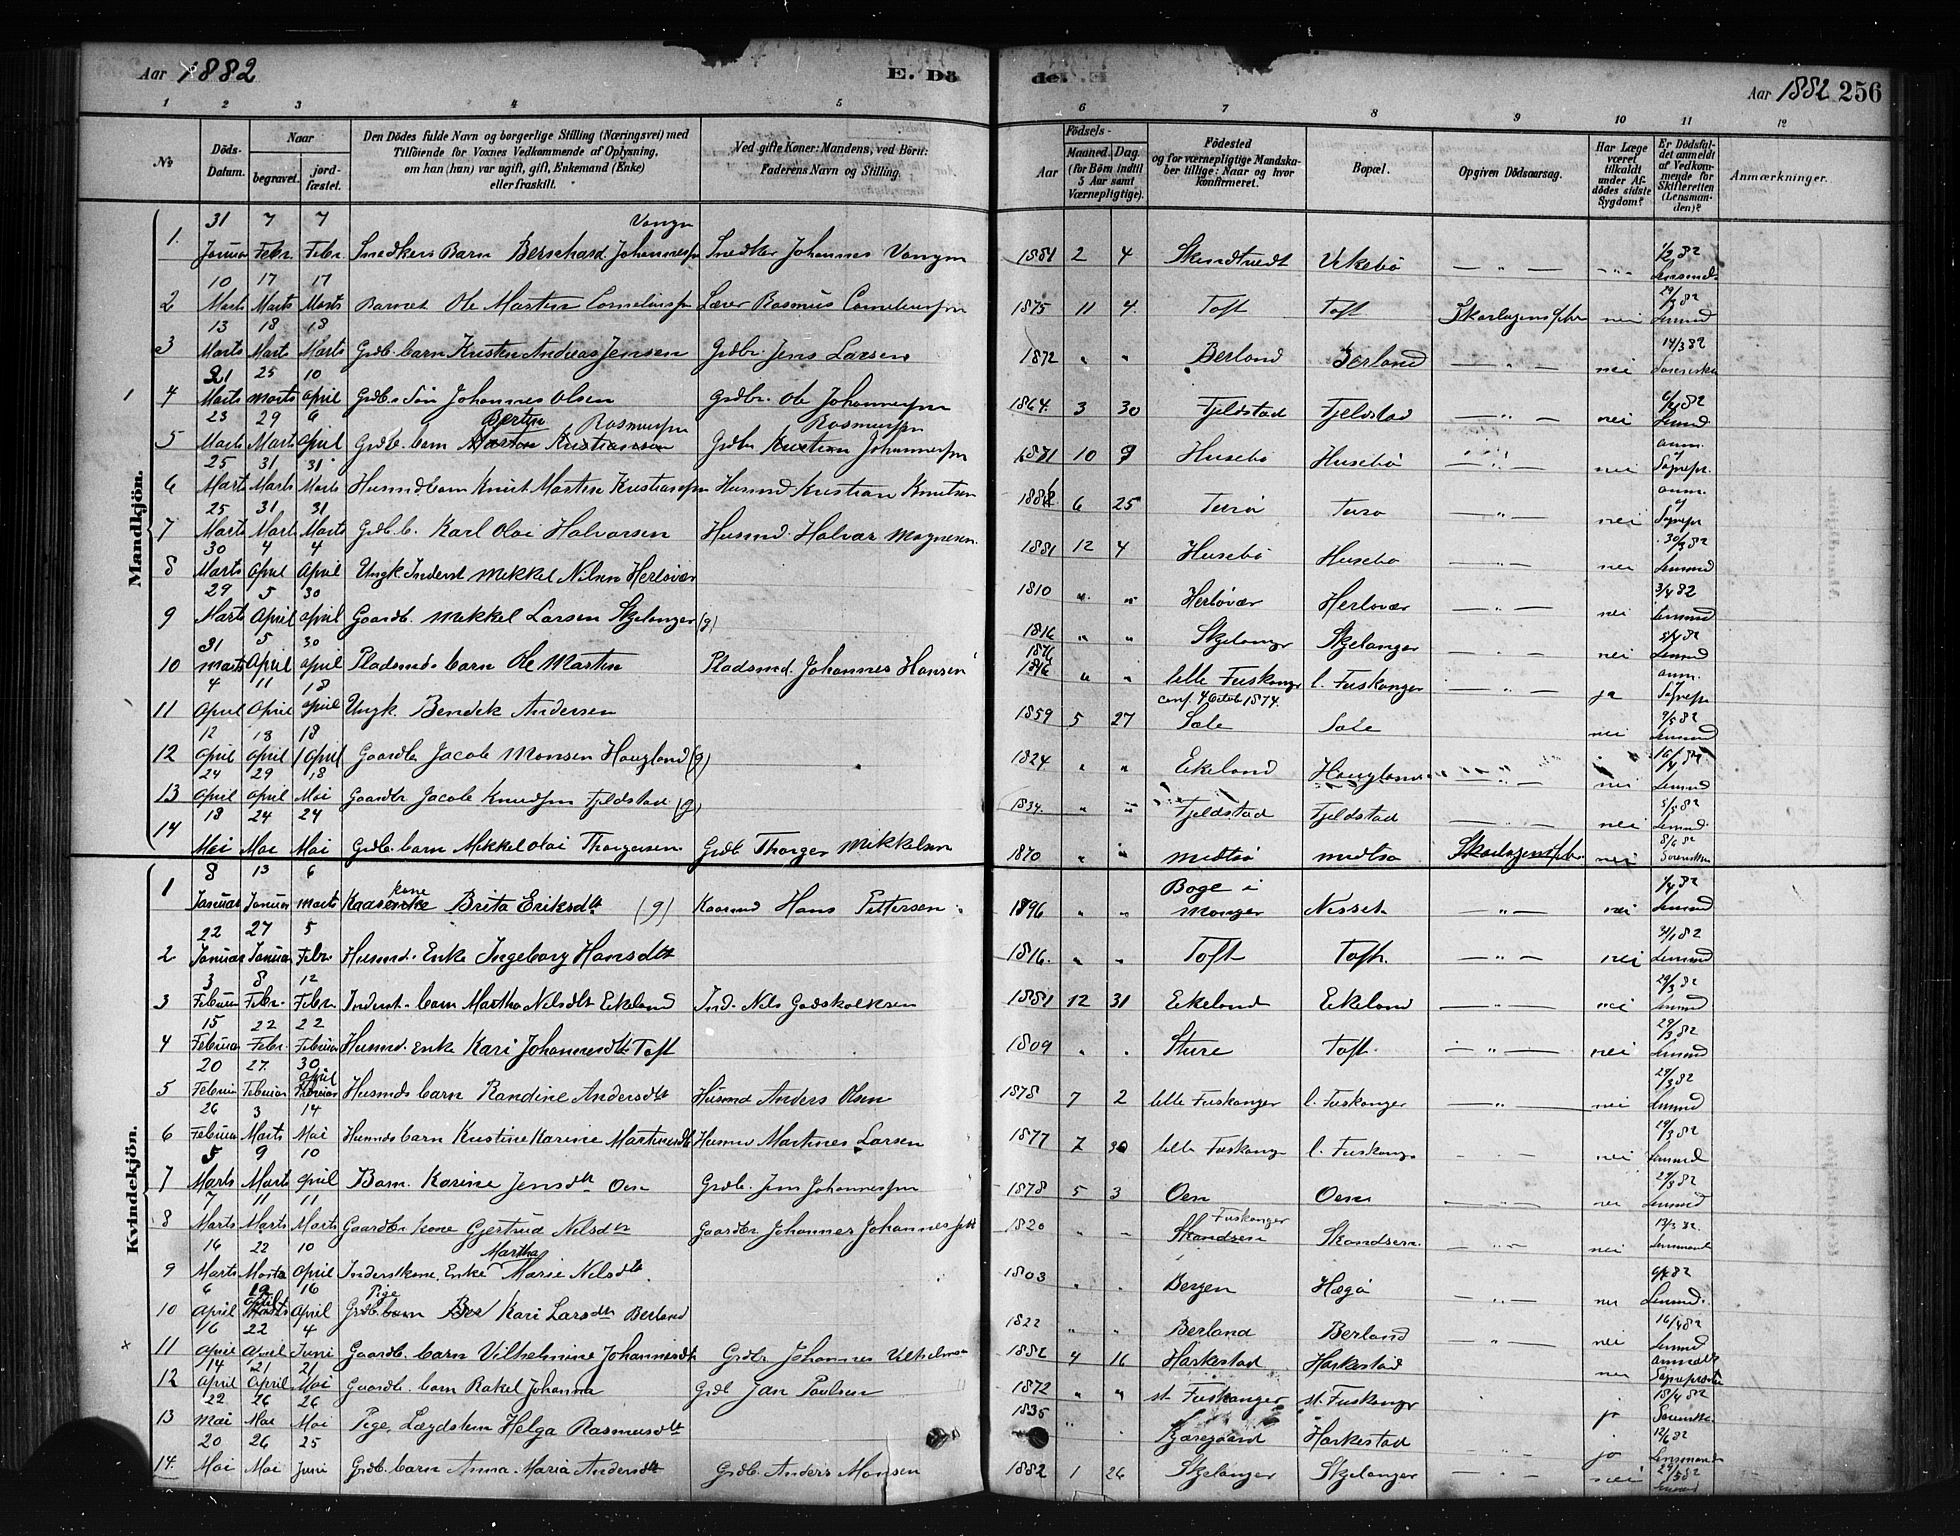 Aar 1882 E. Dö
de. Aar 1882 256
1 2 3 4 5 6 7 8 9 10 11 12
No
Döds-Datum.
Naar
begravet.
jord-fæstet.
Den Dödes fulde Navn og borgerlige Stilling (Næringsvei) med
Tilföiende for Voxnes Vedkommende af Oplysning,
om han (hun) var ugift, gift, Enkemand (Enke)
eller fraskilt.
Ved gifte Koner: Mandens, ved Börn:
Faderens Navn og Stilling.
Födsels-
Aar
Maaned. Dag.
(for Börn indtil
5 Aar samt
Værnepligtige).
Födested
og for værnepligtige Mandska-
ber tillige: Naar og hvor
konfirmeret.
Bopæl.
Opgiven Dödsaarsag.
Har Læge
været
tilkaldt
under Af-
dödes sidste
Sygdom?
Er Dödsfal-
det anmeldt
af Vedkom-
mende for
Skifteretten
(Lensman-
den)?
Anmærkninger.
Mandkjön.
1. 31 Januar 7 Febr. 7 Febr. Snedkers Barn Bernhard Johannessen Vangen Snedker Johannes Vangen 1881 2 4 Skundtvedt Virkebö — " — 1/2 82 Lensmd.
2 10 Marts 17 Marts 17 Marts Barnet Ole Martin Corneliussen Lærer Rasmus Corneliussen 1875 11 4 Toft Toft Skarlagensfeber nei 29/3 82 Lensmd
3 13 Marts 18 Marts 18 Marts Grdb. barn Kristen Andreas Jensen Grdbr. Jens Larsen 1872 " " Berland Berland — " — nei 14/3 82
4 21 Marts 25 Marts 10 April Grdb. Sön Johannes Olsen Grdbr. Ole Johannessen 1864 3 30 Fjeldstad Fjeldstad — " — nei 6/4 82 Lensmd
5 23 Marts 29 Marts 9 April Grdb. barn Bertin Rasmussen Grdbr Rasmussen Johannessen 1871 10 9 Husebö Husebö — " — nei anm. af Sognepr.
6 25 Marts 31 Marts 31 Marts Husmdbarn Knut Martin Kristiansen Husmd Kristian Knutsen 1882 6 25 Turö Turö — " — nei anm. af Sognepr
7 25 Marts 31 Marts 31 Marts Grdb. b. Karl Olai Halvorsen Husmd. Halvor Magnesen 1881 12 4 Husebö Husebö — " — nei 30/3 82 Lensmd
8 30 Marts 4 April 4 April Ungk Inderst Mikkel Nilsen Herlövær 1810 " " Herlövær Herlövær — " — nei 3/4 82 Lensmd
9 29 Marts 5 April 30 April Gaardb. Mikkel Larsen Skjelanger (g) 1816 " " Skjelanger Skjelanger — " — nei 8/4 82 Lensmd
10 31 Marts 5 April 30 April Pladsmds barn Ole Martin Pladsmd. Johannes Hansen 1876 " " lille Fuskanger l. Fuskanger — " — ja anm. af Sognepr
11 4 April 11 April 18 April Ungk. Bendik Andersen 1859 5 27 conf. 4 Octob 1874. Sale Sale nei 9/5 82 Lensmd
12 12 April 18 April 18 April Gaardbr Jacob Monsen Hougland (g) 1824 " " Eikeland Hougland — " — nei 16/4 82 Lensmd
13 24 April 29 April 18 Mai Gaardbr Jacob Knudsen Fjeldstad (g) 1834 " " Fjeldstad Fjeldstad — " — nei 5/5 82 Lensmd
14 18 Mai 24 Mai 24 Mai Grdb. barn Mikkel Olai Thorgersen Grdb Thorger Mikkelsen 1870 " " Midtsö Midtsö Skarlagensfeb. nei 8/6 82
Kvindekjön.
1 8 Januar 13 Januar 6 Marts Kaarkone Brita Eriksdtr (g) Kaarmd Hans Pettersen 1896 " " Boge i Manger Nesset — " — nei 1/4 82 Lensmd
2 22 Januar 27 Januar 5 Febr. Husmd. Enke Ingeborg Hansdtr 1816 " " Toft Toft — " — nei 31/1 82 Lensmd
3 3 Februar 8 Febr. 12 Febr. Inderst. barn Martha Nilsdtr Eikeland Ind. Nils Godskalksen 1881 12 31 Eikeland Eikeland — " — nei 29/3 82 Lensmd
4 15 Februar 22 Febr. 22 Februar Husmd. Enke Kari Johannesdtr Toft 1809 " " Sture Toft — " — nei 29/3 82 Lensmd
5 20 Februar 27 Februar 30 April Husmds barn Randine Andersdtr Husmd Anders Olsen 1878 7 2 lille Fuskanger l. Fuskanger — " — nei 29/3 82 Lensmd
6 26 Februar 3 Marts 14 Mai Husmds barn Kristine Karine Martinesdtr Husmd Martines Larsen 1877 7 30 lille Fuskanger l. Fuskanger nei 19/3 82 Lensmd
7 5 Marts 9 Marts 10 April Barn Karine Jensdtr Oen Grdb. Jens Johannessen 1878 5 3 Oen Oen — " — nei 29/3 82 Lensmd
8 7 Marts 11 Marts 11 Marts Gaardbr kone Gjertrud Nilsdtr Gaardbr Johannes Johannessen 1820 " " Fuskanger Skandsen Skandsen — " — nei 13/3 82 Lensmand
9 16 Marts 22 Marts 10 April Inderstkone, Enke Martha Marie Nilsdtr 1803 " " Bergen Hægö — " — nei 9/4 82 Lensmd.
10 6 April 12 April 16 April Pige Kari Larsdtr Berland 1822 " " Berland Berland — " — nei 16/4 82 Lensmd
11 16 April 22 April 4 Juni Gaardb. barn Vilhelmine Johannesdtr Grdbr Johannes Vilhelmsen 1882 4 16 Harkestad Harkestad nei anmeldt Sognepræsten
12 14 April 21 April 21 Mai Gaardb. barn Rakel Johanna Grdb Jan Paulsen 1872 " " st. Fuskanger st. Fuskanger ja 18/4 82
13 22 Mai 26 Mai 26 Mai Pige, Lægdslem Helga Rasmusdtr 1835 " " Kjæregaard Harkestad ja 12/6 82 Lensmand
14. 20 Mai 26 Mai 25 Juni Grdb. barn Anna Maria Andersdtr Grdb. Anders Monsen 1882 1 26 Skjelanger Skjelanger — " — nei 24/5 82 Lensmd